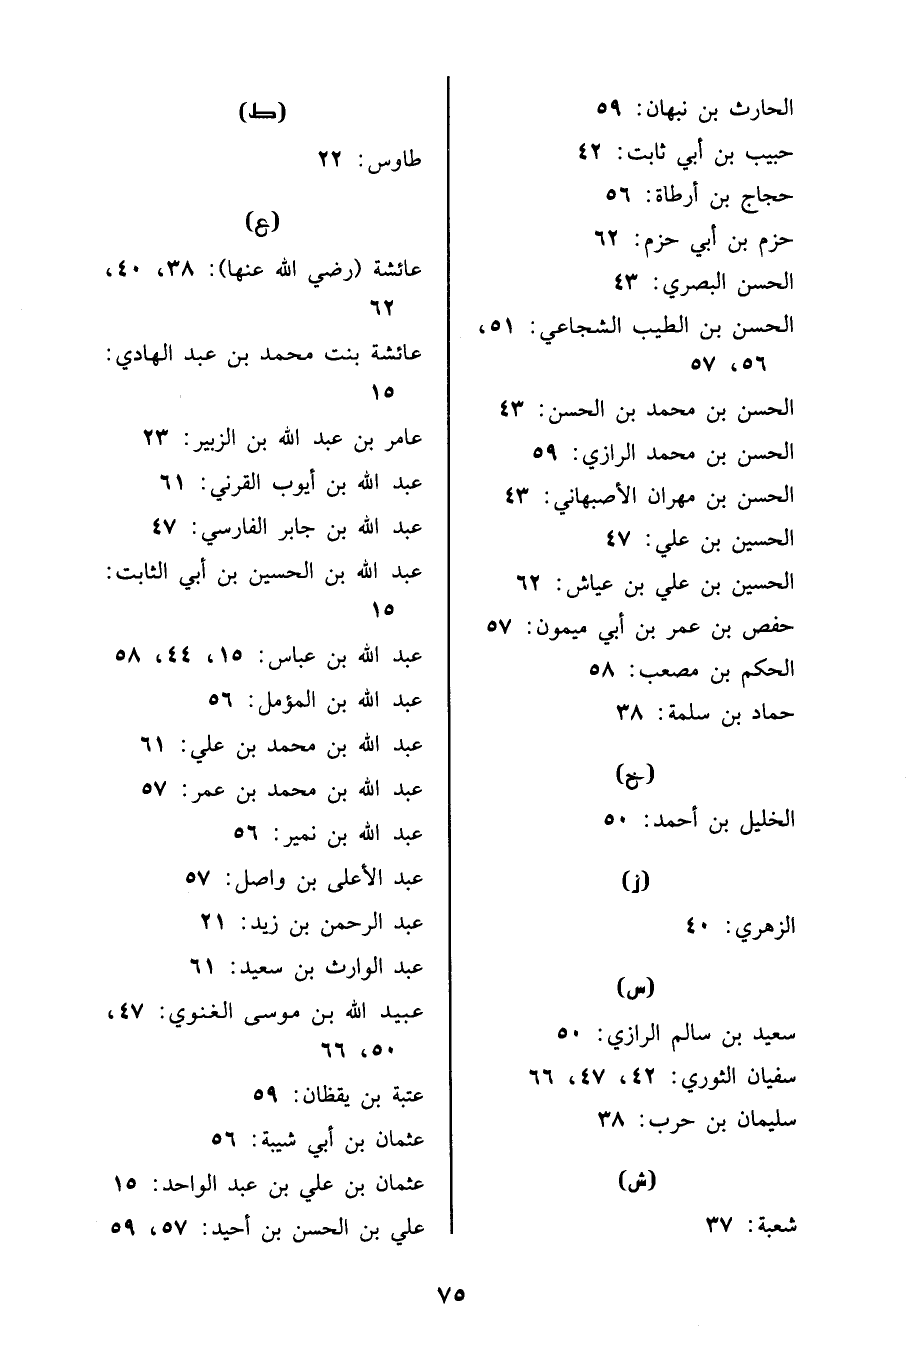 الحارث بن نبهان: ٥٩
حبيب بن أبي ثابت: ٤٢
حجاج بن أرطاة: ٥٦
حزم بن أبي حزم: ٦٢
الحسن البصري: ٤٣
الحسن بن الطيب الشجاعي: ٥١،
٥٦، ٥٧
الحسن بن محمد بن الحسن: ٤٣
الحسن بن محمد الرازي: ٥٩
الحسن بن مهران الأصبهاني: ٤٣
الحسين بن علي: ٤٧
الحسين بن علي بن عياش: ٦٢
حفص بن عمر بن أبي ميمون: ٥٧
الحكم بن مصعب: ٥٨
حماد بن سلمة: ٣٨
(خ)
الخليل بن أحمد: ٥٠
(ز)
الزهري: ٤٠
(س)
سعيد بن سالم الرازي: ٥٠
سفيان الثوري: ٤٢، ٤٧، ٦٦
سليمان بن حرب: ٣٨
(ش)
شعبة: ٣٧
(ط)
طاوس: ٢٢
(ع)
عائشة (رضي الله عنها): ٣٨، ٤٠،
٦٢
عائشة بنت محمد بن عبد الهادي:
١٥
عامر بن عبد الله بن الزبير: ٢٣
عبد الله بن أيوب القرني: ٦١
عبد الله بن جابر الفارسي: ٤٧
عبد الله بن الحسين بن أبي الثابت:
١٥
عبد الله بن عباس: ١٥، ٤٤، ٥٨
عبد الله بن المؤمل: ٥٦
عبد الله بن محمد بن علي: ٦١
عبد الله بن محمد بن عمر: ٥٧
عبد الله بن نمير: ٥٦
عبد الأعلى بن واصل: ٥٧
عبد الرحمن بن زيد: ٢١
عبد الوارث بن سعيد: ٦١
عبيد الله بن موسى الغنوي: ٤٧،
٥٠، ٦٦
عتبة بن يقظان: ٥٩
عثمان بن أبي شيبة: ٥٦
عثمان بن علي بن عبد الواحد: ١٥
علي بن الحسن بن أحيد: ٥٧، ٥٩
٧٥